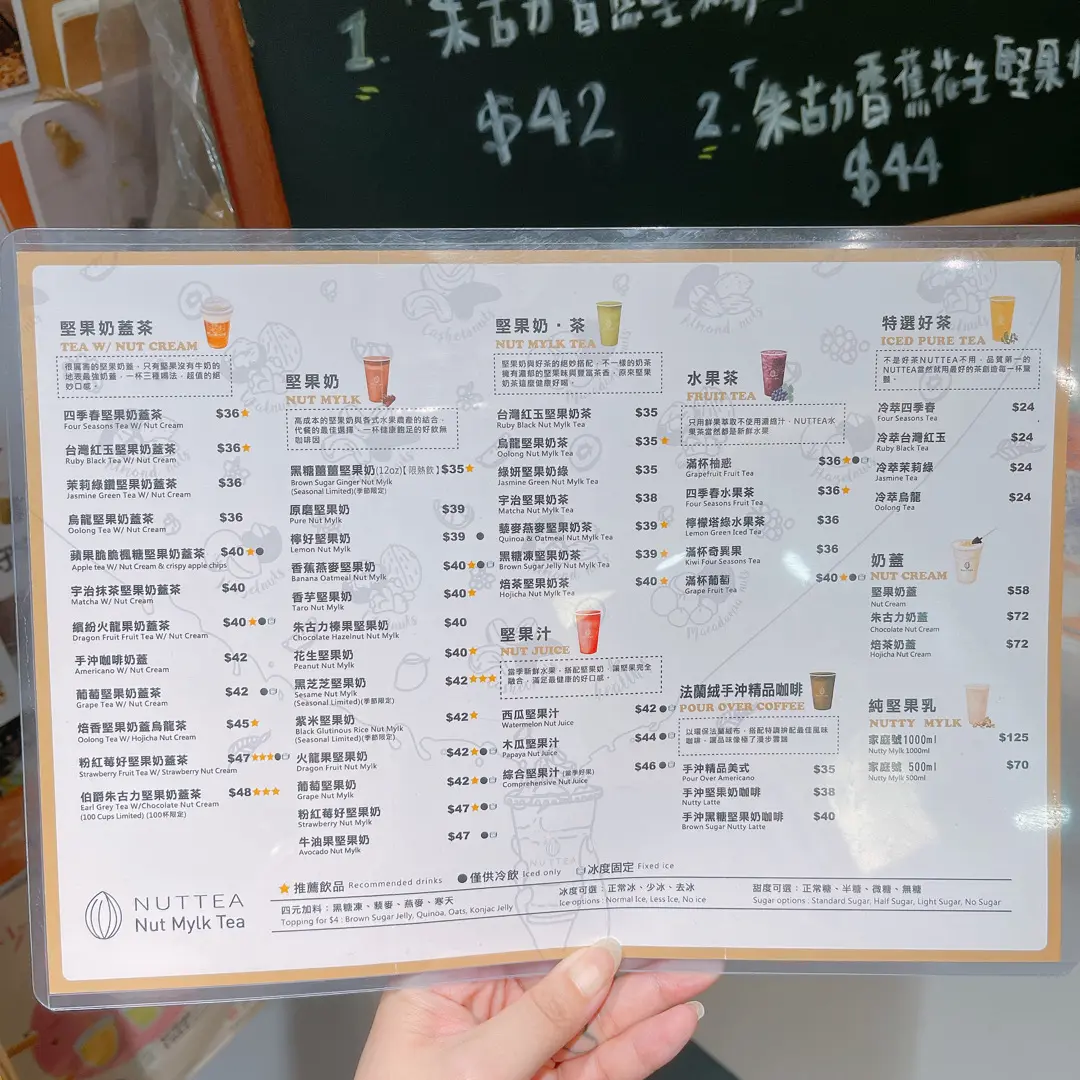 1.
$42
2.「朱古力香蕉花生堅果
$44
堅果奶蓋茶
TEA W/ NUT CREAM
很厲害的堅果奶蓋，只有堅果沒有牛奶的
地表最強奶蓋，一杯三種喝法，超值的絕
妙口感。
四季春堅果奶蓋茶 $36
Four Seasons Tea W/ Nut Cream
台灣紅玉堅果奶蓋茶 $36
Ruby Black Tea W/ Nut Cream
茉莉綠鑽堅果奶蓋茶 $36
Jasmine Green Tea W/ Nut Cream
烏龍堅果奶蓋茶 $36
Oolong Tea W/ Nut Cream
蘋果脆脆楓糖堅果奶蓋茶 $40
Apple tea W/ Nut Cream & crispy apple chips
宇治抹茶堅果奶蓋茶 $40
Matcha W/ Nut Cream
繽紛火龍果奶蓋茶 $40
Dragon Fruit Fruit Tea W/ Nut Cream
手沖咖啡奶蓋 $42
Americano W/ Nut Cream
葡萄堅果奶蓋茶 $42
Grape Tea W/ Nut Cream
焙香堅果奶蓋烏龍茶 $45
Oolong Tea W/ Hojicha Nut Cream
粉紅莓好堅果奶蓋茶 $47
Strawberry Fruit Tea W/ Strawberry Nut Cream
伯爵朱古力堅果奶蓋茶 $48
Earl Grey Tea W/Chocolate Nut Cream
(100 Cups Limited) (100杯限定)
堅果奶
NUT MYLK
高成本的堅果奶與各式水果農產的結合，
代餐的最佳選擇，一杯健康飽足的好飲無
咖啡因
黑糖薑薑堅果奶(12oz)【限熱飲】 $35
Brown Sugar Ginger Nut Mylk
(Seasonal Limited)(季節限定)
原磨堅果奶 $39
Pure Nut Mylk
檸好堅果奶 $39
Lemon Nut Mylk
香蕉燕麥堅果奶 $40
Banana Oatmeal Nut Mylk
香芋堅果奶 $40
Taro Nut Mylk
朱古力榛果堅果奶 $40
Chocolate Hazelnut Nut Mylk
花生堅果奶 $40
Peanut Nut Mylk
黑芝芝堅果奶 $42
Sesame Nut Mylk
(Seasonal Limited)(季節限定)
紫米堅果奶 $42
Black Glutinous Rice Nut Mylk
(Seasonal Limited)(季節限定)
火龍果堅果奶 $42
Dragon Fruit Nut Mylk
葡萄堅果奶 $42
Grape Nut Mylk
粉紅莓好堅果奶 $47
Strawberry Nut Mylk
牛油果堅果奶 $47
Avocado Nut Mylk
堅果奶·茶
NUT MYLK TEA
堅果奶與好茶的絕妙搭配，不一樣的奶茶
擁有濃郁的堅果味與豐富茶香，原來堅果
奶茶這麼健康好喝。
台灣紅玉堅果奶茶 $35
Ruby Black Nut Mylk Tea
烏龍堅果奶茶 $35
Oolong Nut Mylk Tea
綠妍堅果奶綠 $35
Jasmine Green Nut Mylk Tea
宇治堅果奶茶 $38
Matcha Nut Mylk Tea
藜麥燕麥堅果奶茶 $39
Quinoa & Oatmeal Nut Mylk Tea
黑糖凍堅果奶茶 $39
Brown Sugar Jelly Nut Mylk Tea
焙茶堅果奶茶 $40
Hojicha Nut Mylk Tea
堅果汁
NUT JUICE
當季新鮮水果，搭配堅果奶，讓堅果完全
融合，滿足最健康的好口感。
西瓜堅果汁 $42
Watermelon Nut Juice
木瓜堅果汁 $44
Papaya Nut Juice
綜合堅果汁(當季好果) $46
Comprehensive Nut Juice
水果茶
FRUIT TEA
只用鮮果萃取不使用濃縮汁，NUTTEA水
果茶當然都是新鮮水果
滿杯柚惑 $36
Grapefruit Fruit Tea
四季春水果茶 $36
Four Seasons Fruit Tea
檸檬塔綠水果茶 $36
Lemon Green Iced Tea
滿杯奇異果 $36
Kiwi Four Seasons Tea
滿杯葡萄 $40
Grape Fruit Tea
法蘭絨手沖精品咖啡
POUR OVER COFFEE
以環保法蘭絨布，搭配特調拼配最佳風味
咖啡，讓品味像極了漫步雲端
手沖精品美式 $35
Pour Over Americano
手沖堅果奶咖啡 $38
Nutty Latte
手沖黑糖堅果奶咖啡 $40
Brown Sugar Nutty Latte
特選好茶
ICED PURE TEA
不是好茶NUTTEA不用，品質第一的
NUTTEA當然就用最好的茶創造每一杯驚
豔。
冷萃四季春 $24
Four Seasons Tea
冷萃台灣紅玉 $24
Ruby Black Tea
冷萃茉莉綠 $24
Jasmine Tea
冷萃烏龍 $24
Oolong Tea
奶蓋
NUT CREAM
堅果奶蓋 $58
Nut Cream
朱古力奶蓋 $72
Chocolate Nut Cream
焙茶奶蓋 $72
Hojicha Nut Cream
純堅果乳
NUTTY MYLK
家庭號1000ml $125
Nutty Mylk 1000ml
家庭號 500ml $70
Nutty Mylk 500ml
NUTTEA
NUTTEA
Nut Mylk Tea
推薦飲品 Recommended drinks 僅供冷飲 Iced only 冰度固定 Fixed ice
四元加料：黑糖凍、藜麥、燕麥、寒天
Topping for $4 : Brown Sugar Jelly, Quinoa, Oats, Konjac Jelly
冰度可選：正常冰、少冰、去冰
Ice options : Normal Ice, Less Ice, No ice
甜度可選：正常糖、半糖、微糖、無糖
Sugar options : Standard Sugar, Half Sugar, Light Sugar, No Sugar